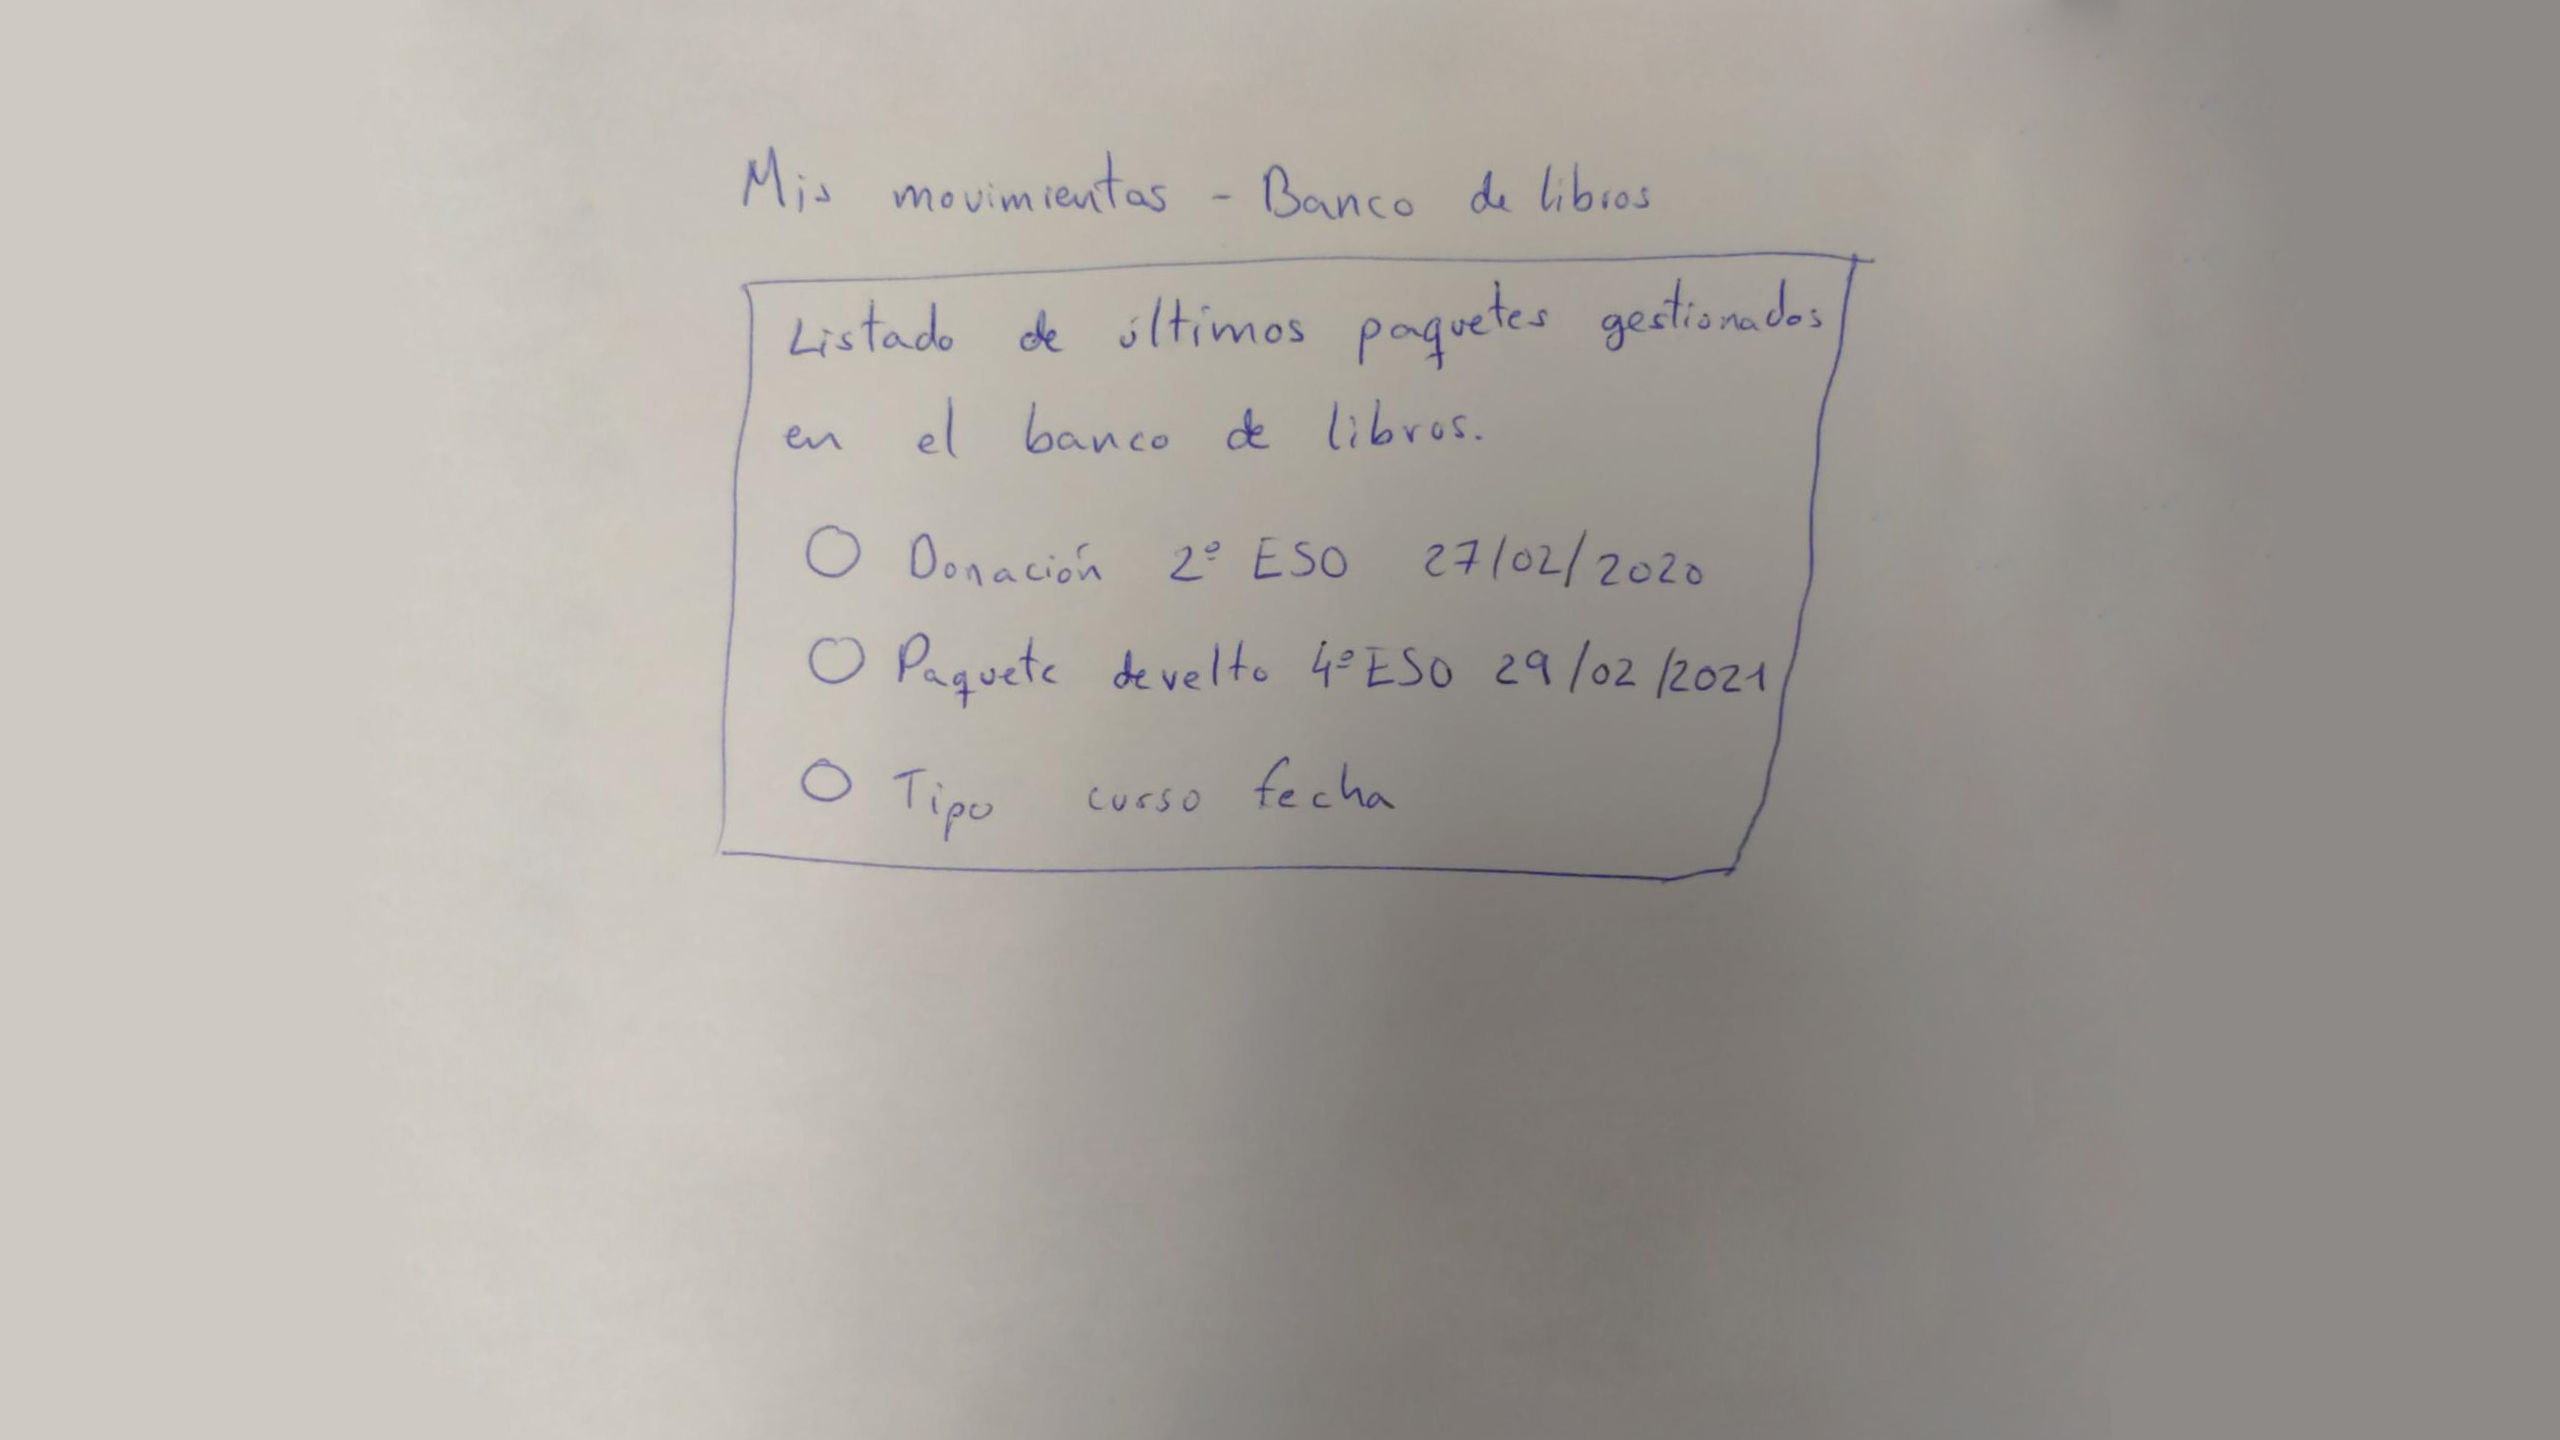 Mis movimientos - Banco de libros
Listado de últimos paquetes gestionados
en el banco de libros.
Donación 2º ESO 27/02/2020
Paquete develto 4º ESO 29/02/2021
Tipo curso fecha